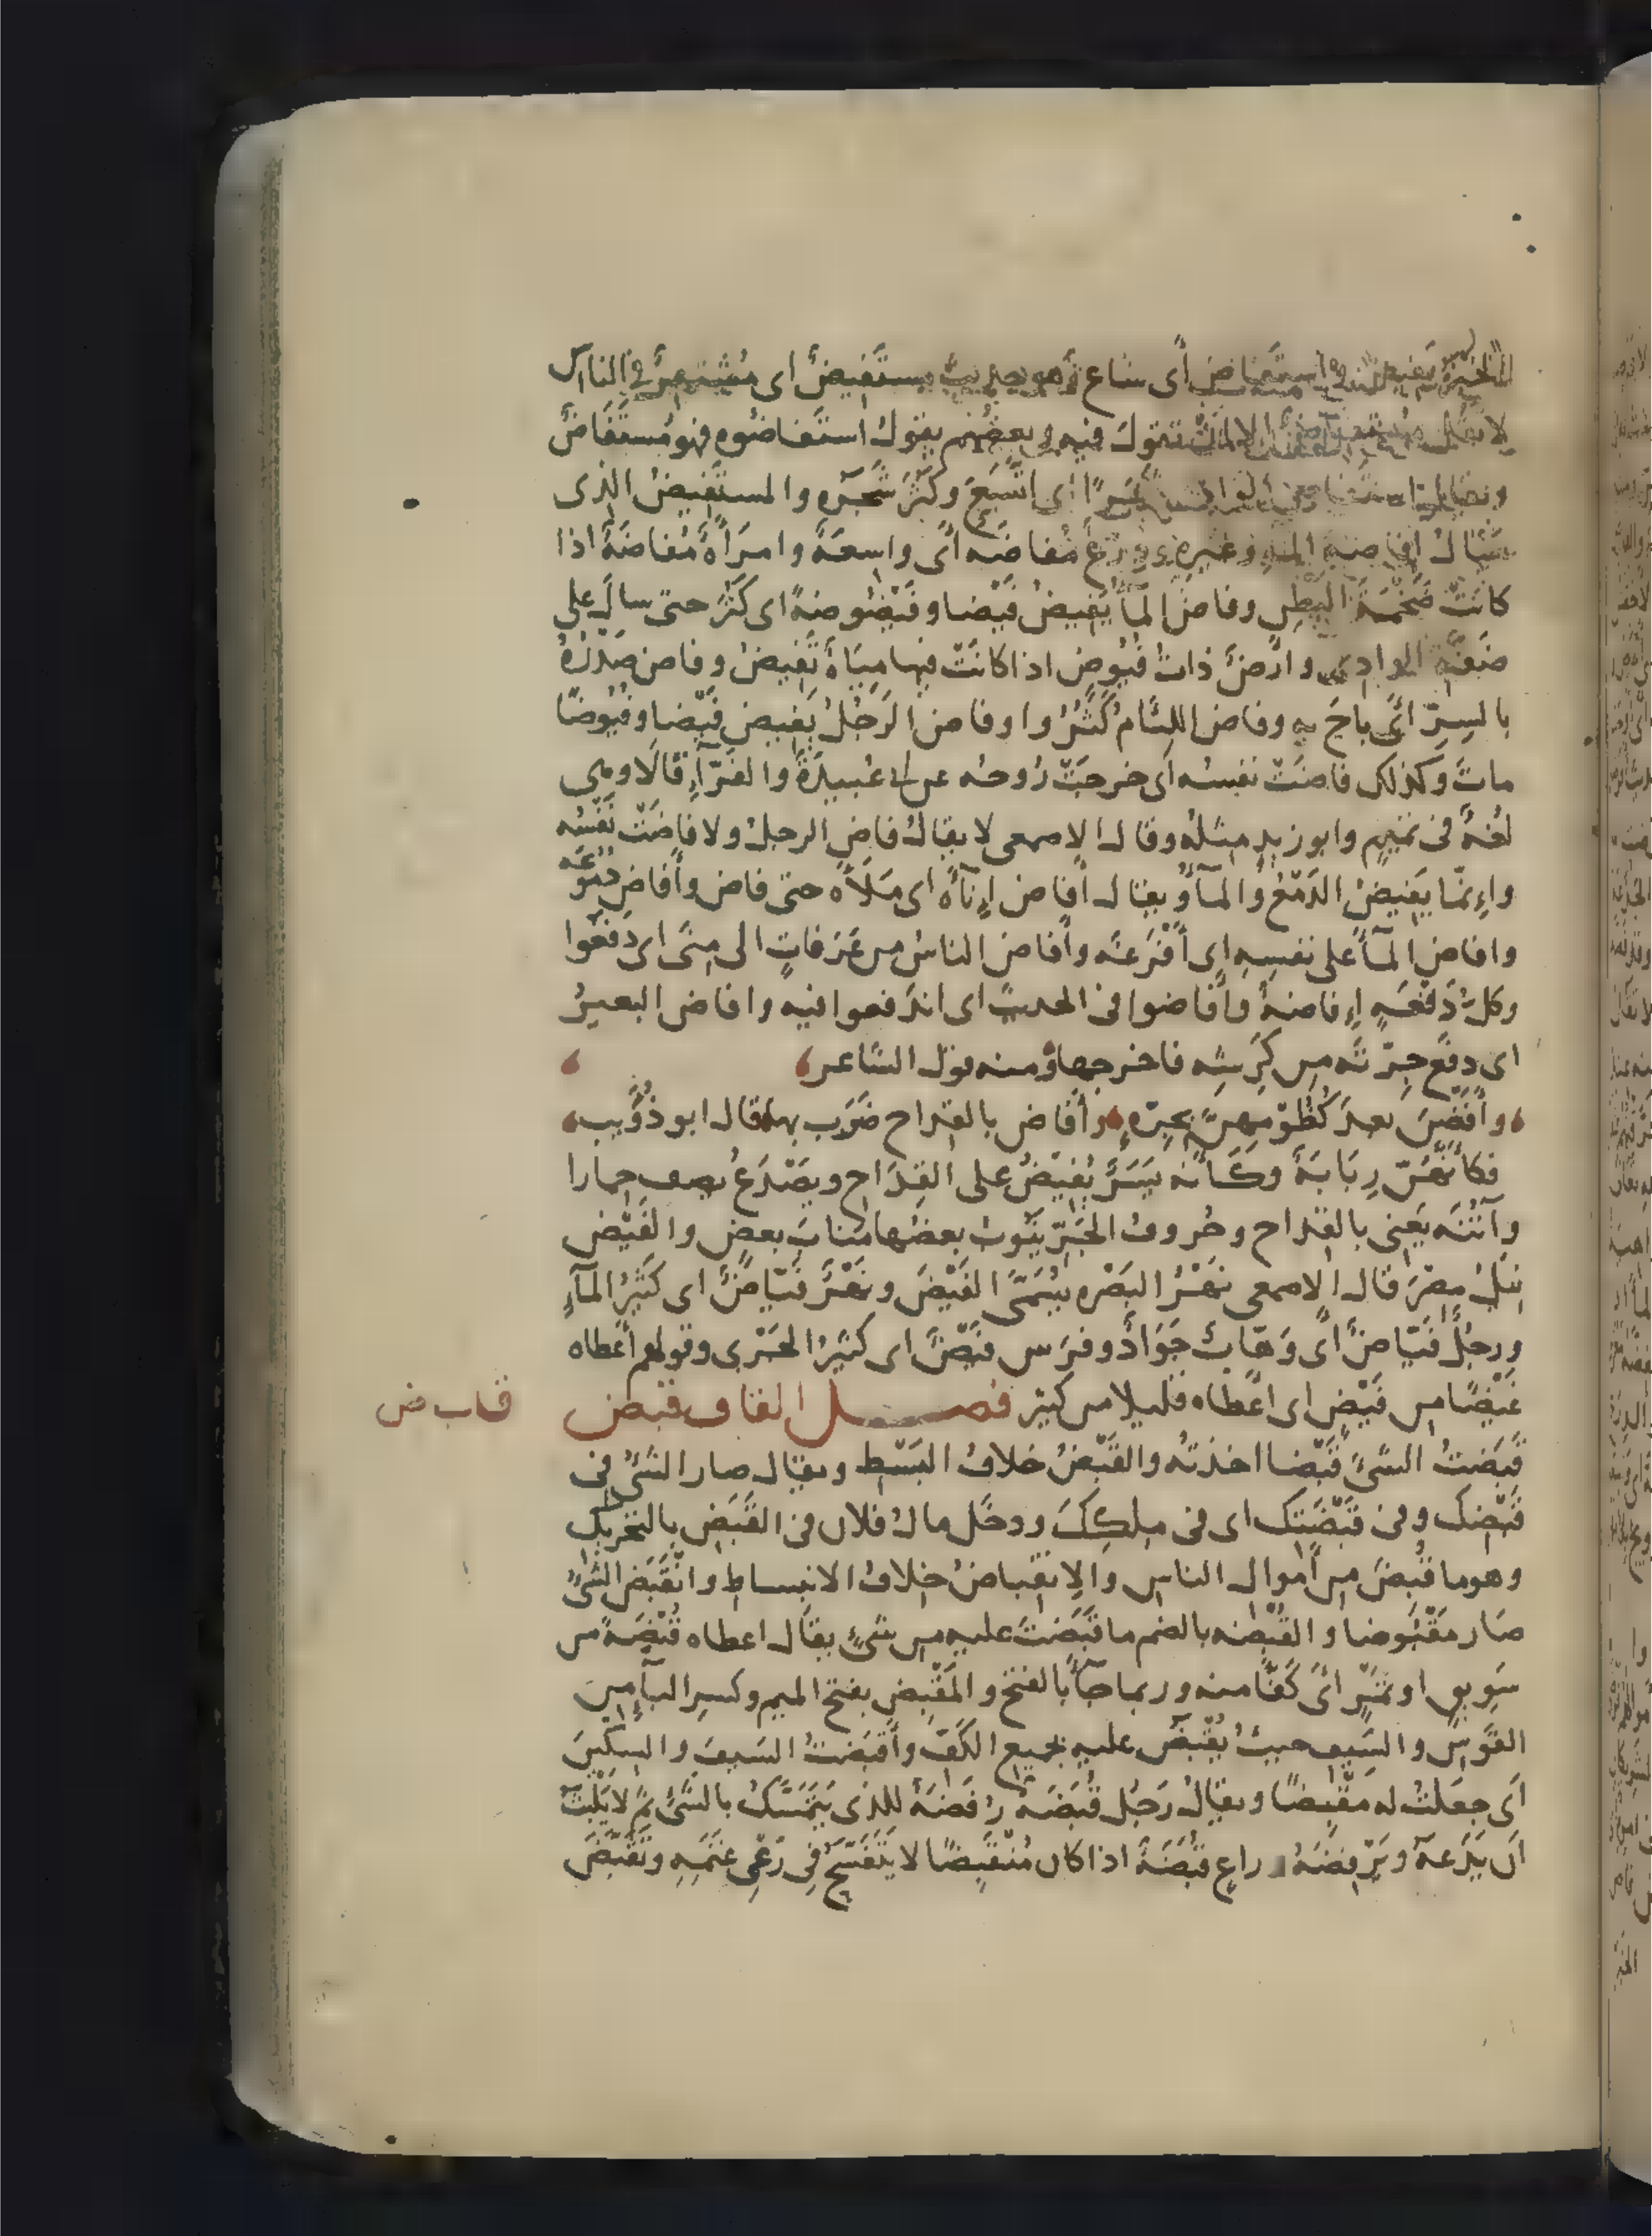 الخبر يفيض واستفاض أى شاع وهو حديث مستفيضٌ اى مُنتشِرٌ فى الناس
لا يقل مستفاض الا ان تقول فيه وبعضُهم يقول استفاضُوه فهو مُستفَاضٌ
واستفاض الوادى شجرًا اى اتّسَعَ وكَثُرَ شَجَره والمستَفِيضُ الذى
يسال افاضة الماءِ وغيره ودِرْعٌ مُفاضَه أى واسِعَةٌ وامرَأَةٌ مُفاضَةٌ اذا
كانَتْ ضَخْمَةَ البَطنِ وفاضَ الماءُ يَفِيضُ فَيْضا وفَيْضُوضةً اى كَثُرَ حتى سالَ على
ضَفَّةِ الوادى وارْضٌ ذاتُ فُيُوض اذا كانَتْ فيها مِيَاهٌ تَفِيضُ وفاض صَدْرُهُ
بالسِرّ أىْ باحَ به وفاض اللئام كَثُرُوا وفاض الرَجُلُ يَفيض فَيْضا وفُيُوضًا
ماتَ وكذلك فاضَتْ نفسُه اى خرجَتْ رُوحُه عن ابى عُبَيدَةَ والفَرّاءِ قالَا وهى
لُغةٌ فى تميمٍ وابو زيدٍ مِثلُه وقال الاصمعى لا يقالُ فاض الرجلُ ولا فاضَتْ نَفْسُه
واِنمّا يَفيضُ الدَمْعُ والماءُ ويقال أفاض اِناءَه اى مَلَأَه حتى فاض وأفاض دُمُوعَه
وافاض الماءَ على نفسِهِ اى أَفْرَغَه وأفاض الناسُ من عَرَفاتٍ الى مِنًى اى دَفَعُوا
وكلُّ دَفْعَةٍ اِفاضةٌ وأفاضوا فى الحديث اى اندَفعوا فيه وافاض البعيرُ
اى دفَع جِرّتَه من كَرِشِه فاخرجها ومنه قول الشاعر
وأَفَضْنَ بعدَ كُظُومِهِنَّ بجِرّةٍ وأفاض بالقداح ضَرَب بها قال ابو ذُؤَيب
فكأَنَّهُنّ رِبَابَةٌ وكَأنّه يَسَرٌ يُفِيضُ على القِدَاحِ ويَصْدَعُ يصف حِمارا
وآتُنَه يَعنِى بالقداح وحُروفُ الجَرّ يَنُوبُ بعضُها مَنابَ بعضٍ والفَيْض
نِيلُ مِصْرَ قال الاصمعى نَهْرُ البَصْره يُسَمَّى الفَيْضَ ونَهْرٌ فَيّاضٌ اى كَثِيرُ الماءِ
ورجُلٌ فَيّاضٌ اى وَهّابٌ جَوَادٌ وفرَس فَيْضٌ اى كثيرُ الجَرْى وقولهم أعطاه
غَيْضًا من فَيْضٍ اى أعْطاه قليلا من كثير فصل القاف قبض
ق ب ض
قَبَضتُ الشىءَ قَبْضا اخذتُه والقَبْضُ خلافُ البَسْطِ ويقال صار الشىءُ فى
قَبْضِك وفى قَبْضَتِك اى فى مِلكِكَ ودخَل مالُ فلان فى القَبَضِ بالتحريك
وهو ما قُبِضَ من أموال الناس والاِنقباضُ خلافُ الانبساط وانْقَبَض الشىءُ
صَار مَقْبُوضا والقُبْضَه بالضم ما قَبَضْتَ عليه من شىءٍ يقال اعطاه قُبْضَةً من
سَوِيقٍ او تمْرٍ اىْ كَفًّا منه وربما جاءَ بالفتح والمَقْبِضُ بفتح الميم وكسر الباءِ من
القَوْسِ والسَيفِ حيثُ يُقْبَضُ عليه بجميع الكَفّ وأَقْبَضْتُ السَيفَ والسِكّينَ
أى جعَلتُ له مَقْبِضًا ويقالُ رَجُلٌ قُبَضَةٌ رُفَضَةٌ للذى يَتَمَسَّكُ بالشىءِ ثم لا يَلْبَثُ
أن يَدَعَهُ ويَرْفِضَهُ وراعٍ قُبَضَةٌ اذا كان مُنْقَبِضًا لا يَتَفَسَّحُ فى رَعْى غَنَمِهِ وتَقَبَّضَ